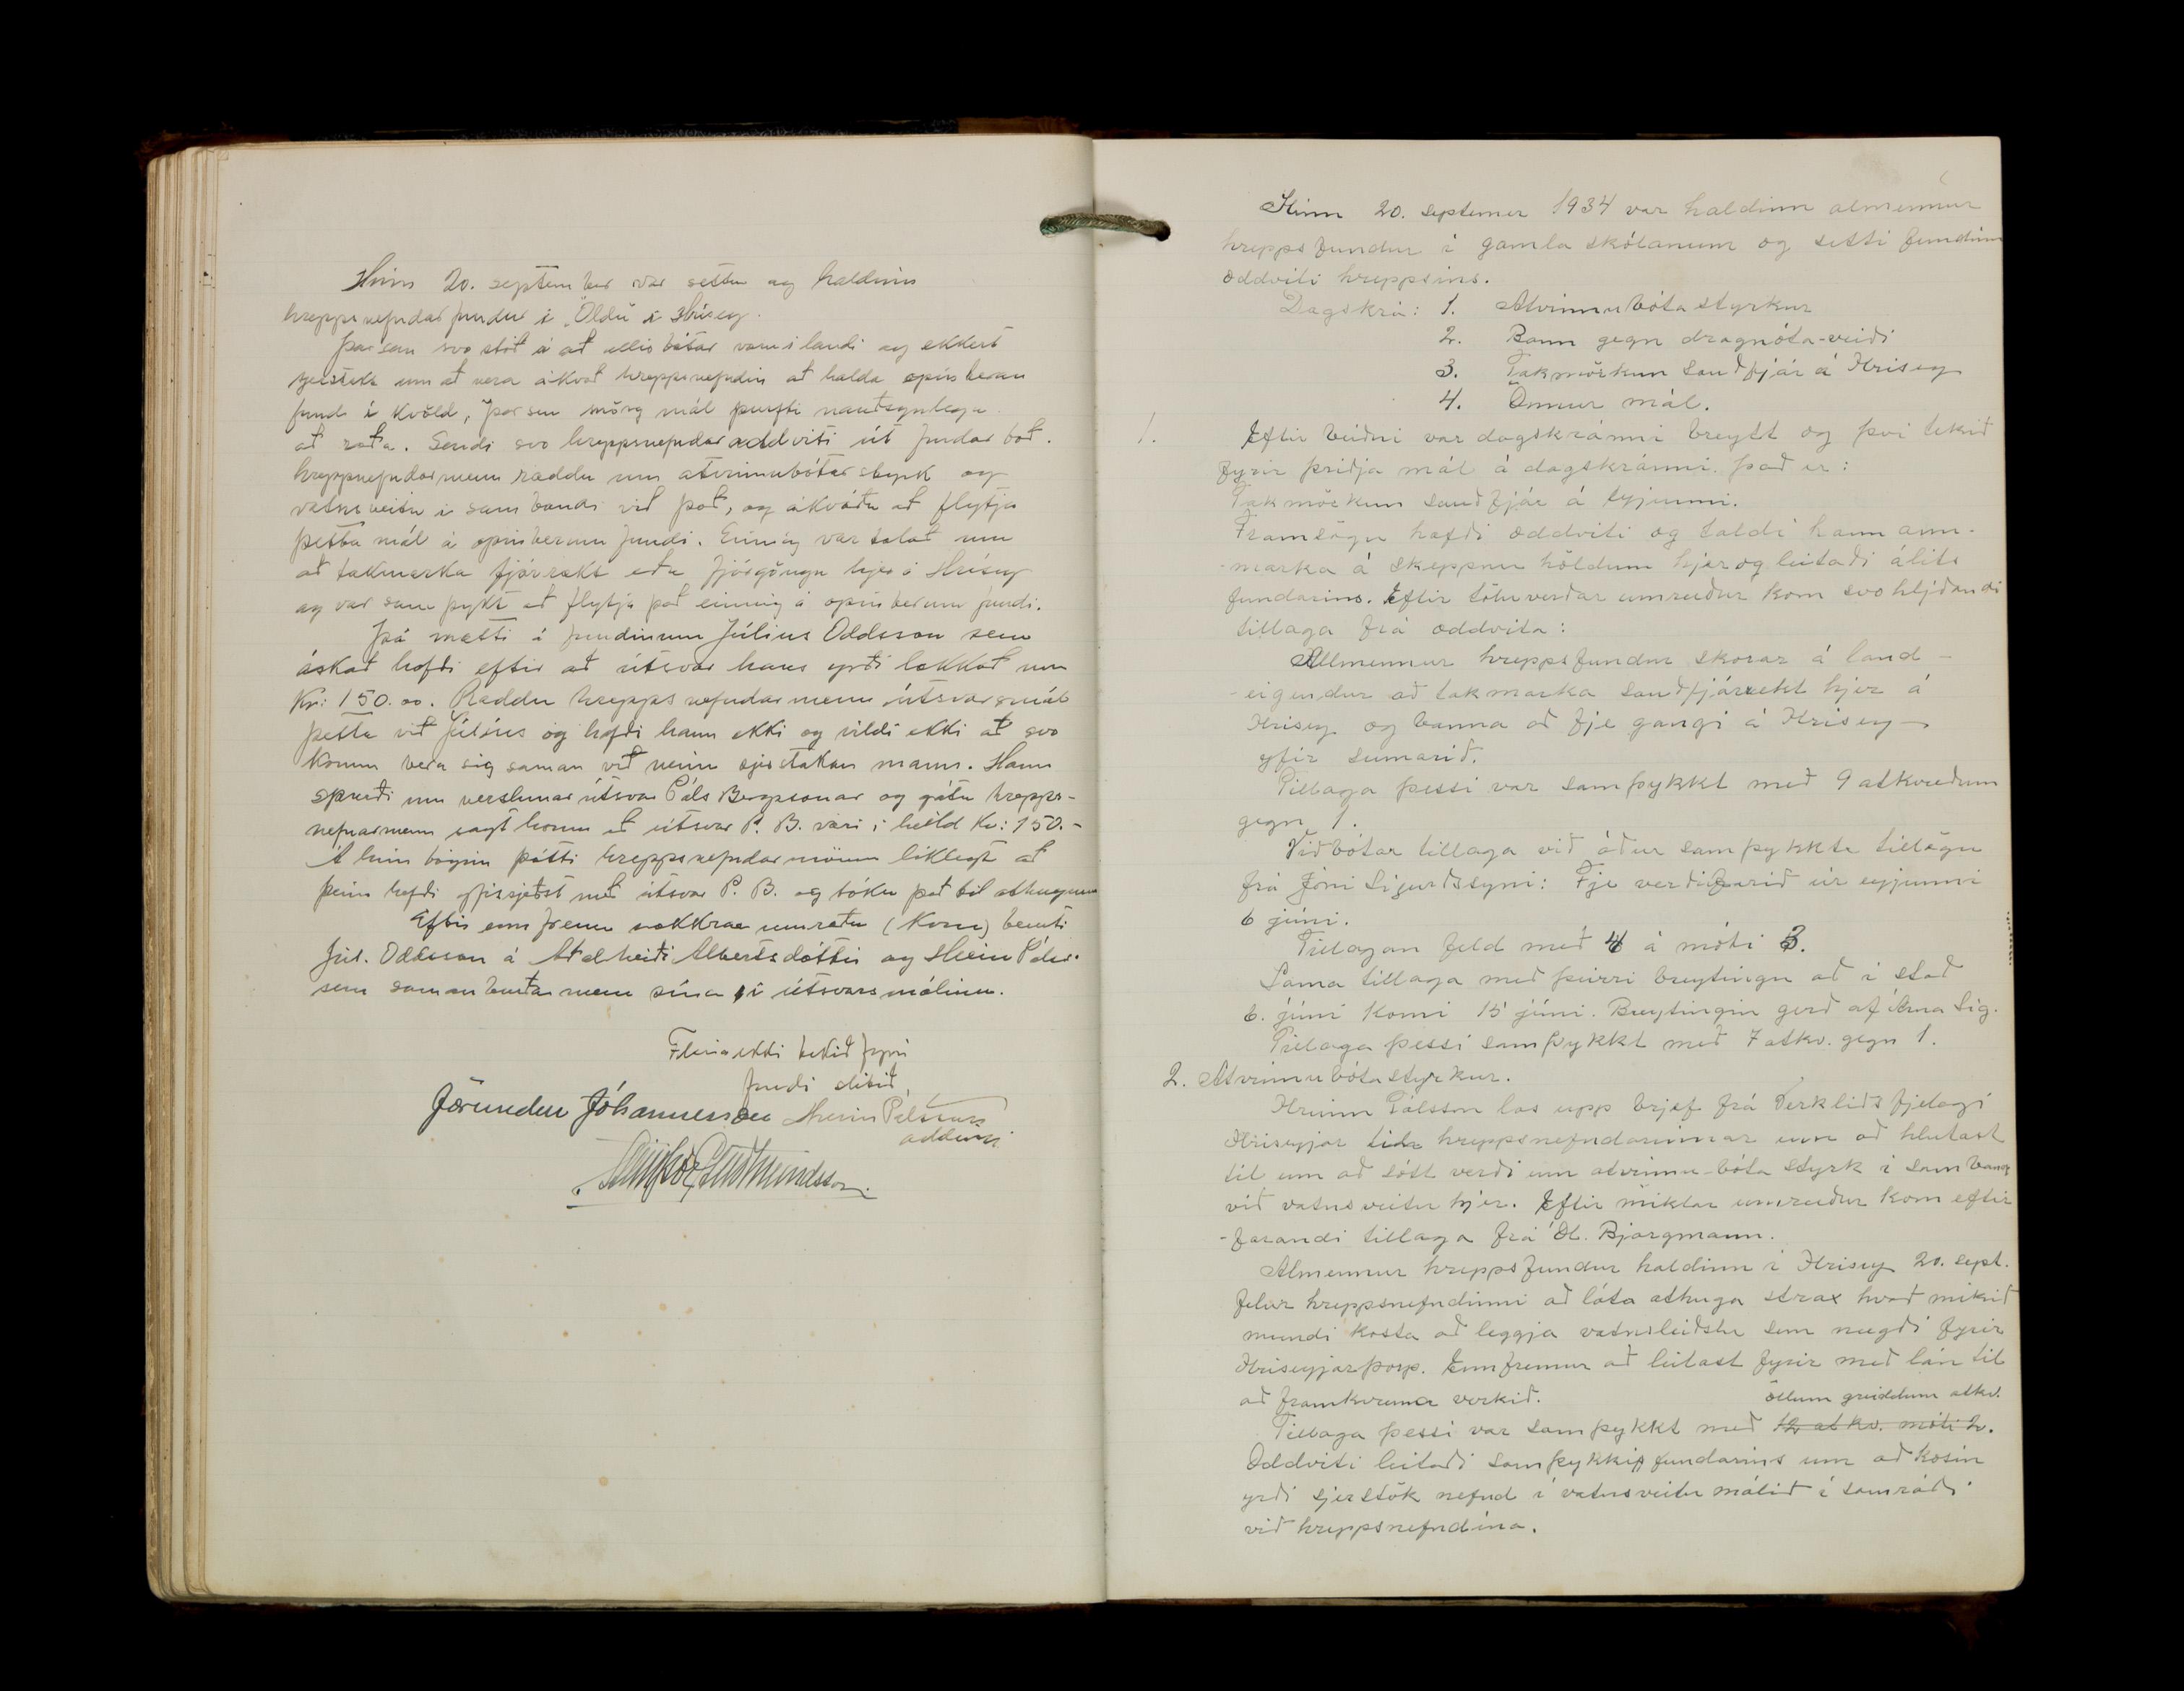 Hinn 20. september var settur og haldinn
hreppsnefndarfundur í "Öldu" í Hrísey.
Þar sem svo stóð á að allir bátar voru í landi og ekkert
sjerstakt um að vera ákvað hreppsnefndin að halda opinberan
fund í kvöld, þar sem mörg mál þurfti nauðsynlega
að ræða. Sendi svo hreppsnefndaroddviti út fundarboð.
Hreppsnefndarmenn ræddu um atvinnubótastyrk og
vatnsveitu í sambandi við það, og ákváðu að flytja
þetta mál á opinberum fundi. Einnig var talað um
að takmarka fjárrækt eða fjárgöngu hjer í Hrísey
og var samþykt að flytja það einnig á opinberum fundi.
Þá mætti á fundinum Júlíus Oddsson sem
óskað hafði eftir að útsvar hans yrði lækkað um
Kr: 150.00. Ræddu hreppsnefndarmenn útsvarsmál
þetta við Júlíus og hafði hann ekki og vildi ekki að svo
komnu bera sig saman við neinn sjerstakan mann. Hann
spurði um verslunarútsvar Páls Bergssonar og gátu hrepps-
nefnarmenn sagt honum að útsvar P. B. væri í heild Kr: 150.-
Á hinn bóginn þótti hreppsnefndarmönnum líklegt að
þeim hefði yfirsjeðst með útsvar P. B. og tóku það til athugunar
Eftir enn fremur nokkrar umræður (Kom) benti
Júl. Oddsson á Aðalheiði Albertsdóttir og Hrein Pálss.
sem samanburðarmenn sína í útsvarsmálinu.
Fleira ekki tekið fyrir
fundi slitið,
Jörundur Jóhannesson Hreinn Pálsson
oddviti
Guðmundsson
Hinn 20. septemer 1934 var haldinn almennur
hreppsfundur í gamla skólanum og setti fundinn
oddviti hreppsins.
Dagskrá: 1. Atvinnubótastyrkur
2. Bann gegn dragnóta-veiði
3. Takmörkun sauðfjár á Hrísey
4. Önnur mál.
1. Eftir beiðni var dagskránni breytt og því tekið
fyrir þriðja mál á dagskránni. það er:
Takmörkun sauðfjár á Eyjunni.
Framsögu hafði oddviti og taldi hann ann-
-marka á skepnu höldum hjer og leitaði álits
fundarins. Eftir töluverðar umræður kom svo hljóðandi
tillaga frá oddvita:
Allmennur hreppsfundur skorar á land-
-eigendur að takmarka sauðfjárrækt hjer á
Hrísey og banna að fje gangi á Hrísey
yfir sumarið.
Tillaga þessi var samþykkt með 9 atkvæðum
gegn 1.
Viðbótar tillaga við áður samþykkta tillögu
frá Jóni Sigurðssyni: Fje verði farið úr eyjunni
6 júní.
Tillagan feld með 4 á móti 3.
Sama tillaga með þeirri breytingu að í stað
6. júní komi 15 júní. Breytingin gerð af Árna Sig.
Tillaga þessi samþykkt með 7 atkv. gegn 1.
2. Atvinnubótastyrkur.
Hreinn Pálsson las upp brjef frá Verkliðsfjelagi
Hríseyjar til hreppsnefndarinnar um að hlutast
til um að sótt verði um atvinnu-bóta styrk í samband
við vatnsveitu hjer. Eftir miklar umræður kom eftir
-farandi tillaga frá Ól. Bjargmann.
Almennur hreppsfundur haldinn í Hrísey 20. sept.
felur hreppsnefndinni að láta athuga strax hvað mikið
mundi kosta að leggja vatnsleiðslu sem nægði fyrir
Hríseyjarþorp. Ennfremur að leitast fyrir með lán til
að framkvæma verkið.
öllum greiddum atkv.
Tillaga þessi var samþykkt með 12 atkv. móti 2.
Oddviti leitaði samþykkis fundarins um að kosin
yrði sjerstök nefnd í vatnsveitu málið í samráði
við hreppsnefndina.